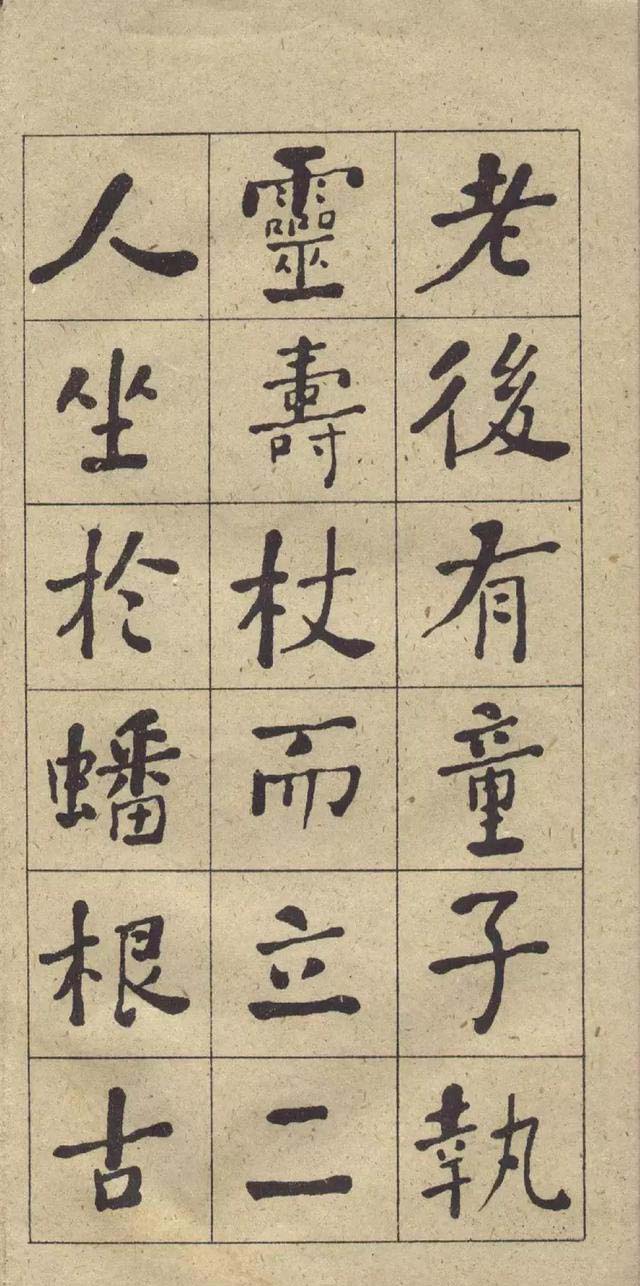 老後有童子執
靈壽杖而立二
人坐於蟠根古